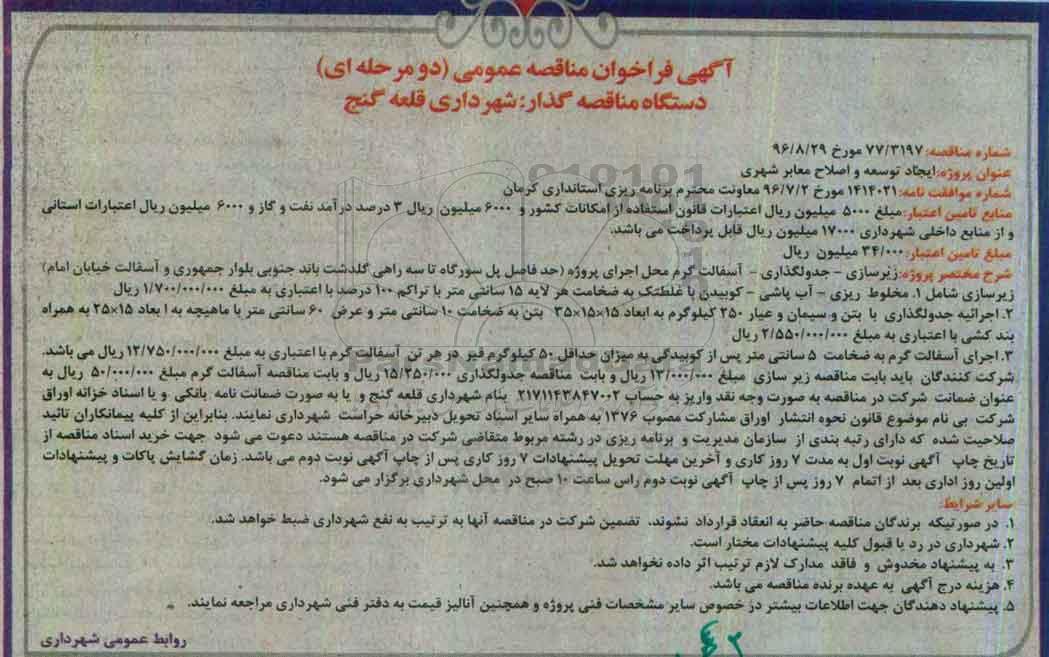 آگهی فراخوان مناقصه عمومی (دو مرحله ای)
دستگاه مناقصه گذار: شهرداری قلعه گنج
شماره مناقصه: ۷۷/۳۱۹۷ مورخ ۹۶/۸/۲۹
عنوان پروژه: ایجاد توسعه و اصلاح معابر شهری
شماره موافقت نامه: ۱۴۱۴۰۲۱ مورخ ۹۶/۷/۲ معاونت محترم برنامه ریزی استانداری کرمان
منابع تامین اعتبار: مبلغ ۵۰۰۰ میلیون ریال اعتبارات قانون استفاده از امکانات کشور و ۶۰۰۰ میلیون ریال ۳ درصد درآمد نفت و گاز و ۶۰۰۰ میلیون ریال اعتبارات استانی
و از منابع داخلی شهرداری ۱۷۰۰۰ میلیون ریال قابل پرداخت می باشد.
مبلغ تامین اعتبار: ۳۴/۰۰۰ میلیون ریال
شرح مختصر پروژه: زیرسازی - جدولگذاری - آسفالت گرم محل اجرای پروژه (حد فاصل پل سورگاه تا سه راهی گلدشت باند جنوبی بلوار جمهوری و آسفالت خیابان امام)
زیرسازی شامل ۱. مخلوط ریزی - آب پاشی - کوبیدن با غلطتک به ضخامت هر لایه ۱۵ سانتی متر با تراکم ۱۰۰ درصد با اعتباری به مبلغ ۱/۷۰۰/۰۰۰/۰۰۰ ریال
۲. اجرائیه جدولگذاری با بتن و سیمان و عیار ۲۵۰ کیلوگرم به ابعاد ۱۵×۱۵×۳۵ بتن به ضخامت ۱۰ سانتی متر و عرض ۶۰ سانتی متر با ماهیچه به ابعاد ۱۵×۲۵ به همراه
بند کشی با اعتباری به مبلغ ۲/۵۵۰/۰۰۰/۰۰۰ ریال
۳. اجرای آسفالت گرم به ضخامت ۵ سانتی متر پس از کوبیدگی به میزان حداقل ۵۰ کیلوگرم قیر در هر تن آسفالت گرم با اعتباری به مبلغ ۱۲/۷۵۰/۰۰۰/۰۰۰ ریال می باشد.
شرکت کنندگان باید بابت مناقصه زیر سازی مبلغ ۱۲/۰۰۰/۰۰۰ ریال و بابت مناقصه جدولگذاری ۱۵/۲۵۰/۰۰۰ ریال و بابت مناقصه آسفالت گرم مبلغ ۵۰/۰۰۰/۰۰۰ ریال به
عنوان ضمانت شرکت در مناقصه به صورت وجه نقد واریز به حساب ۲۱۷۱۱۴۳۸۴۷۰۰۲ بنام شهرداری قلعه گنج و یا به صورت ضمانت نامه بانکی و یا اسناد خزانه اوراق
شرکت بی نام موضوع قانون نحوه انتشار اوراق مشارکت مصوب ۱۳۷۶ به همراه سایر اسناد تحویل دبیرخانه حراست شهرداری نمایند. بنابراین از کلیه پیمانکاران تائید
صلاحیت شده که دارای رتبه بندی از سازمان مدیریت و برنامه ریزی در رشته مربوط متقاضی شرکت در مناقصه هستند دعوت می شود جهت خرید اسناد مناقصه از
تاریخ چاپ آگهی نوبت اول به مدت ۷ روز کاری و آخرین مهلت تحویل پیشنهادات ۷ روز کاری پس از چاپ آگهی نوبت دوم می باشد. زمان گشایش پاکات و پیشنهادات
اولین روز اداری بعد از اتمام ۷ روز پس از چاپ آگهی نوبت دوم راس ساعت ۱۰ صبح در محل شهرداری برگزار می شود.
سایر شرایط:
۱. در صورتیکه برندگان مناقصه حاضر به انعقاد قرارداد نشوند، تضمین شرکت در مناقصه آنها به ترتیب به نفع شهرداری ضبط خواهد شد.
۲. شهرداری در رد یا قبول کلیه پیشنهادات مختار است.
۳. به پیشنهاد مخدوش و فاقد مدارک لازم ترتیب اثر داده نخواهد شد.
۴. هزینه درج آگهی به عهده برنده مناقصه می باشد.
۵. پیشنهاد دهندگان جهت اطلاعات بیشتر در خصوص سایر مشخصات فنی پروژه و همچنین آنالیز قیمت به دفتر فنی شهرداری مراجعه نمایند.
روابط عمومی شهرداری